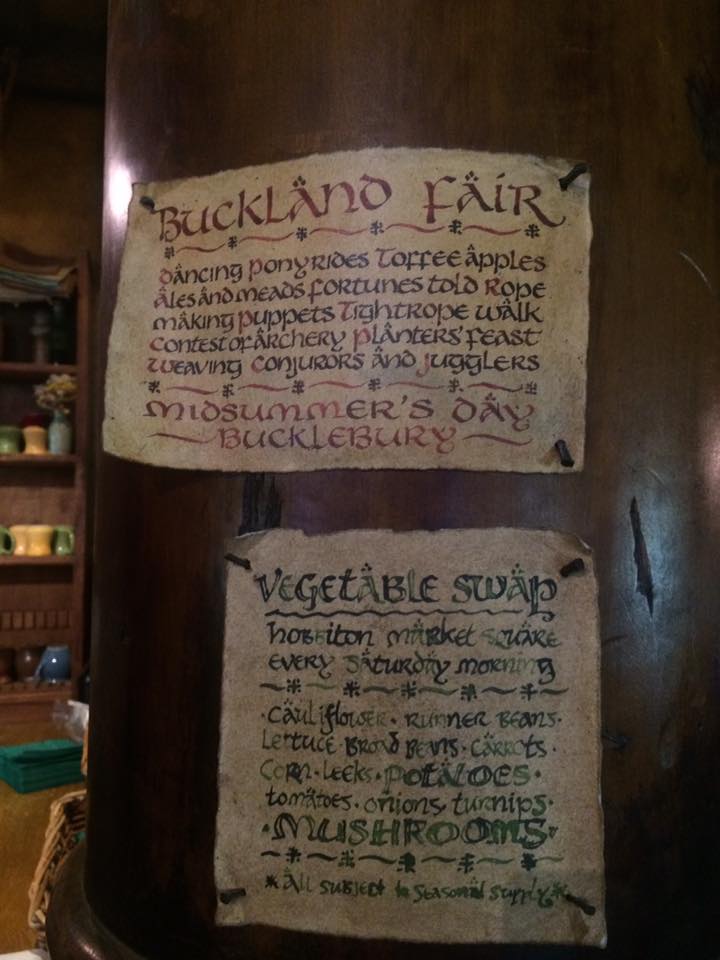 BUCKLAND FAIR
DANCING PONYRIDES TOFFEE APPLES
ALES AND MEADS FORTUNES TOLD ROPE
MAKING PUPPETS TIGHTROPE WALK
CONTEST OF ARCHERY PLANTERS' FEAST
WEAVING CONJURORS AND JUGGLERS
MIDSUMMER'S DAY
BUCKLEBURY
VEGETABLE SWAP
HOBBITON MARKET SQUARE
EVERY SATURDAY MORNING
·CAULIFLOWER·RUNNER BEANS·
LETTUCE BROAD BEANS·CARROTS·
CORN·LEEKS·POTATOES·
TOMATOES·ONIONS, TURNIPS·
·MUSHROOMS·
*ALL SUBJECT to SEASONAL SUPPLY*